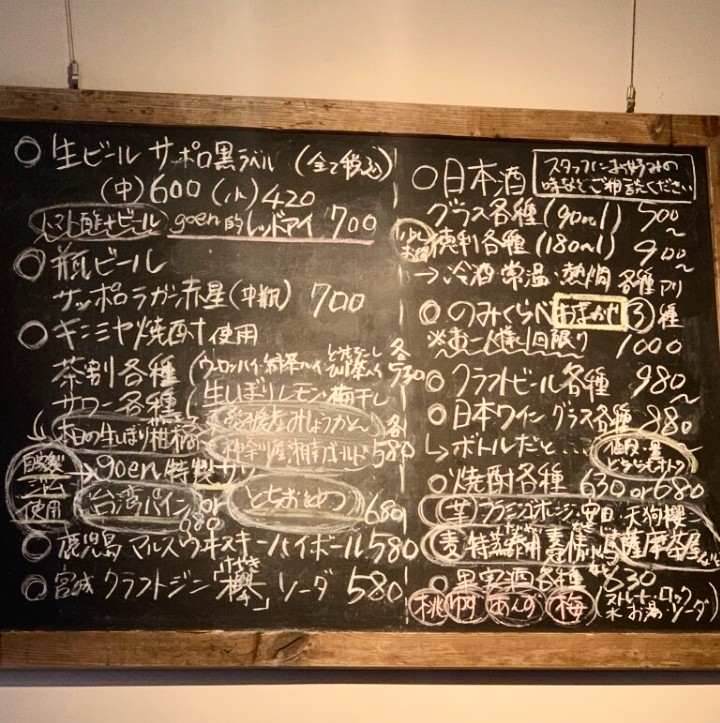 ○生ビール サッポロ黒ラベル (全て税込)
(中)600 (小)420
トマト 生ビール goen的レッドアイ 700
○瓶ビール
サッポロラガー赤星(中瓶) 700
○キンミヤ焼酎使用
茶割各種(ウーロンハイ・緑茶ハイ 各530
サワー各種(生しぼりレモン・梅干し
の生しぼり
神奈川産湘南ゴールド 各580
自家製ジャム使用
→goen特製サワー
台湾パイン or とちおとめ 680
680
○鹿児島 マルスウヰスキーハイボール 580
○宮城 クラフトジン「欅」ソーダ 580
けやき
○日本酒
スタッフにお好みの
味などご相談ください
グラス各種(90ml) 500~
徳利各種(180ml) 900~
→冷酒・常温・熱燗 各種アリ
○のみくらべ おまかせ ③種
※お一人様1回限り 1000
○クラフトビール各種 980~
○日本ワイン グラス各種 880
↳ボトルだと...
○焼酎各種 630 or 680
芋 フラミンゴオレンジ 天狗櫻
麦 特蒸泰明 薩摩茶屋 など
○果実酒各種 630
桃 ゆず あんず 梅
(ストレート・ロック
水 お湯・ソーダ)